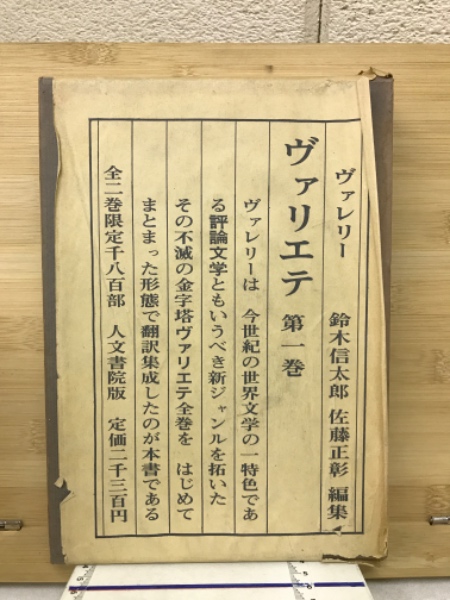 ヴァレリー 鈴木信太郎 佐藤正彰 編集
ヴァリエテ 第一巻
ヴァレリーは 今世紀の世界文学の一特色であ
る評論文学ともいうべき新ジャンルを拓いた
その不滅の金字塔ヴァリエテ全巻を はじめて
まとまった形態で翻訳集成したのが本書である
全二巻限定千八百部 人文書院版 定価二千三百円